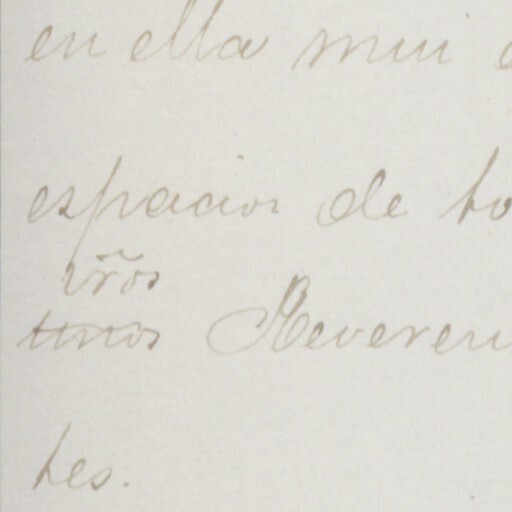 en ella mui
espacios de to
vr̃os
unos Reveren
tes.